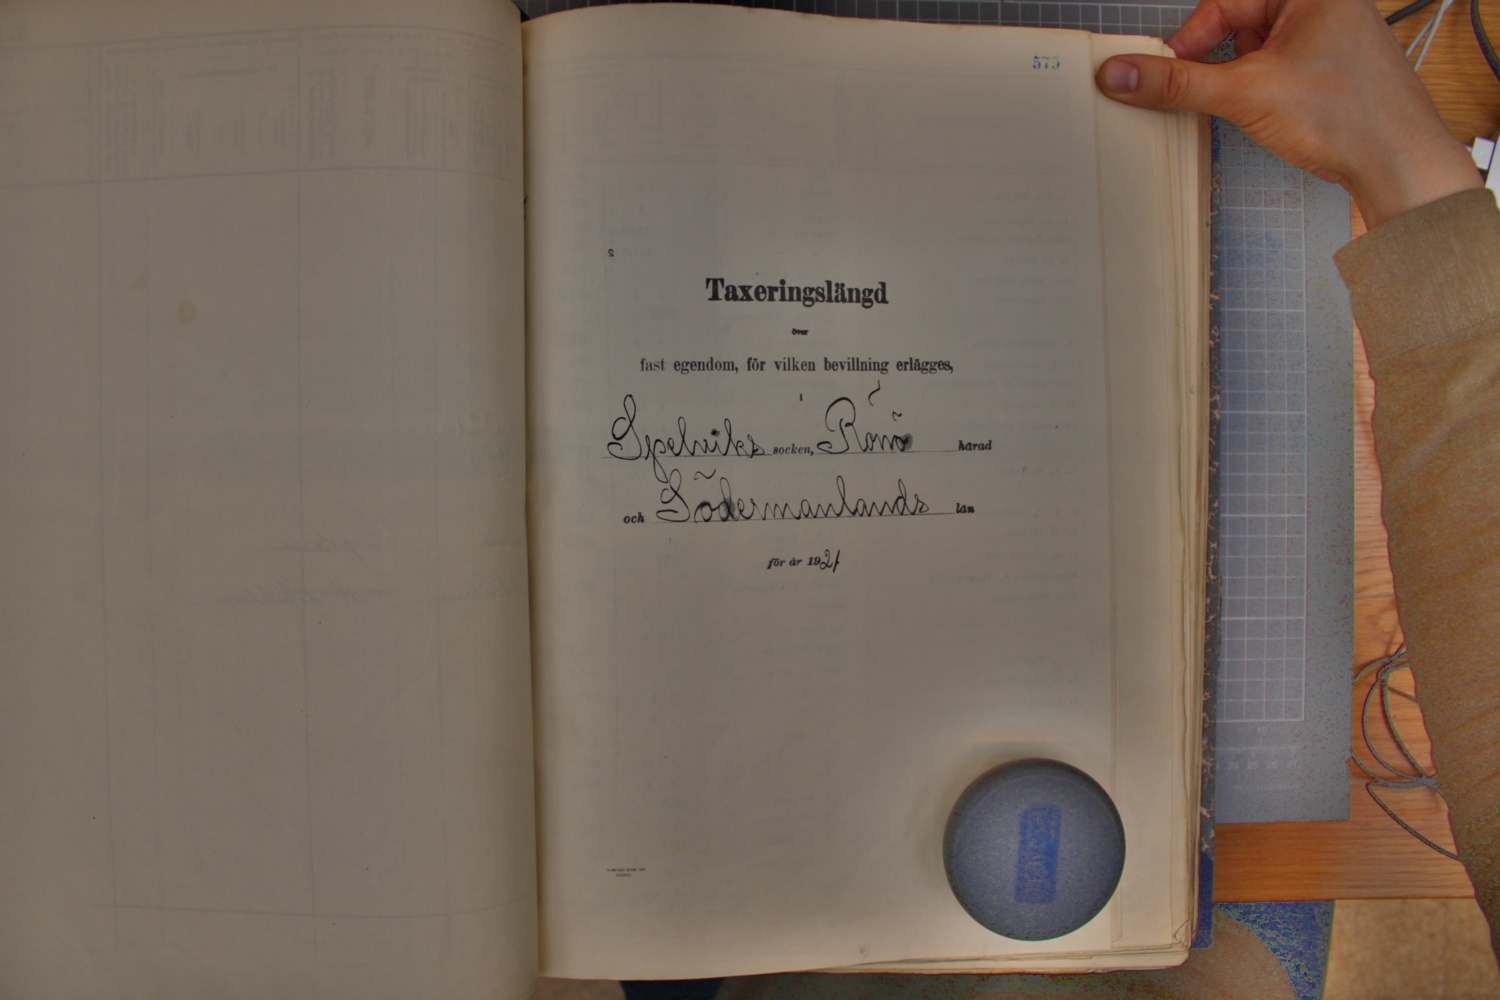 579
Taxeringslängd
över
fast egendom, för vilken bevillning erlägges,
i
Spelviks socken, Rönö härad
och Södermanlands län
för år 1921